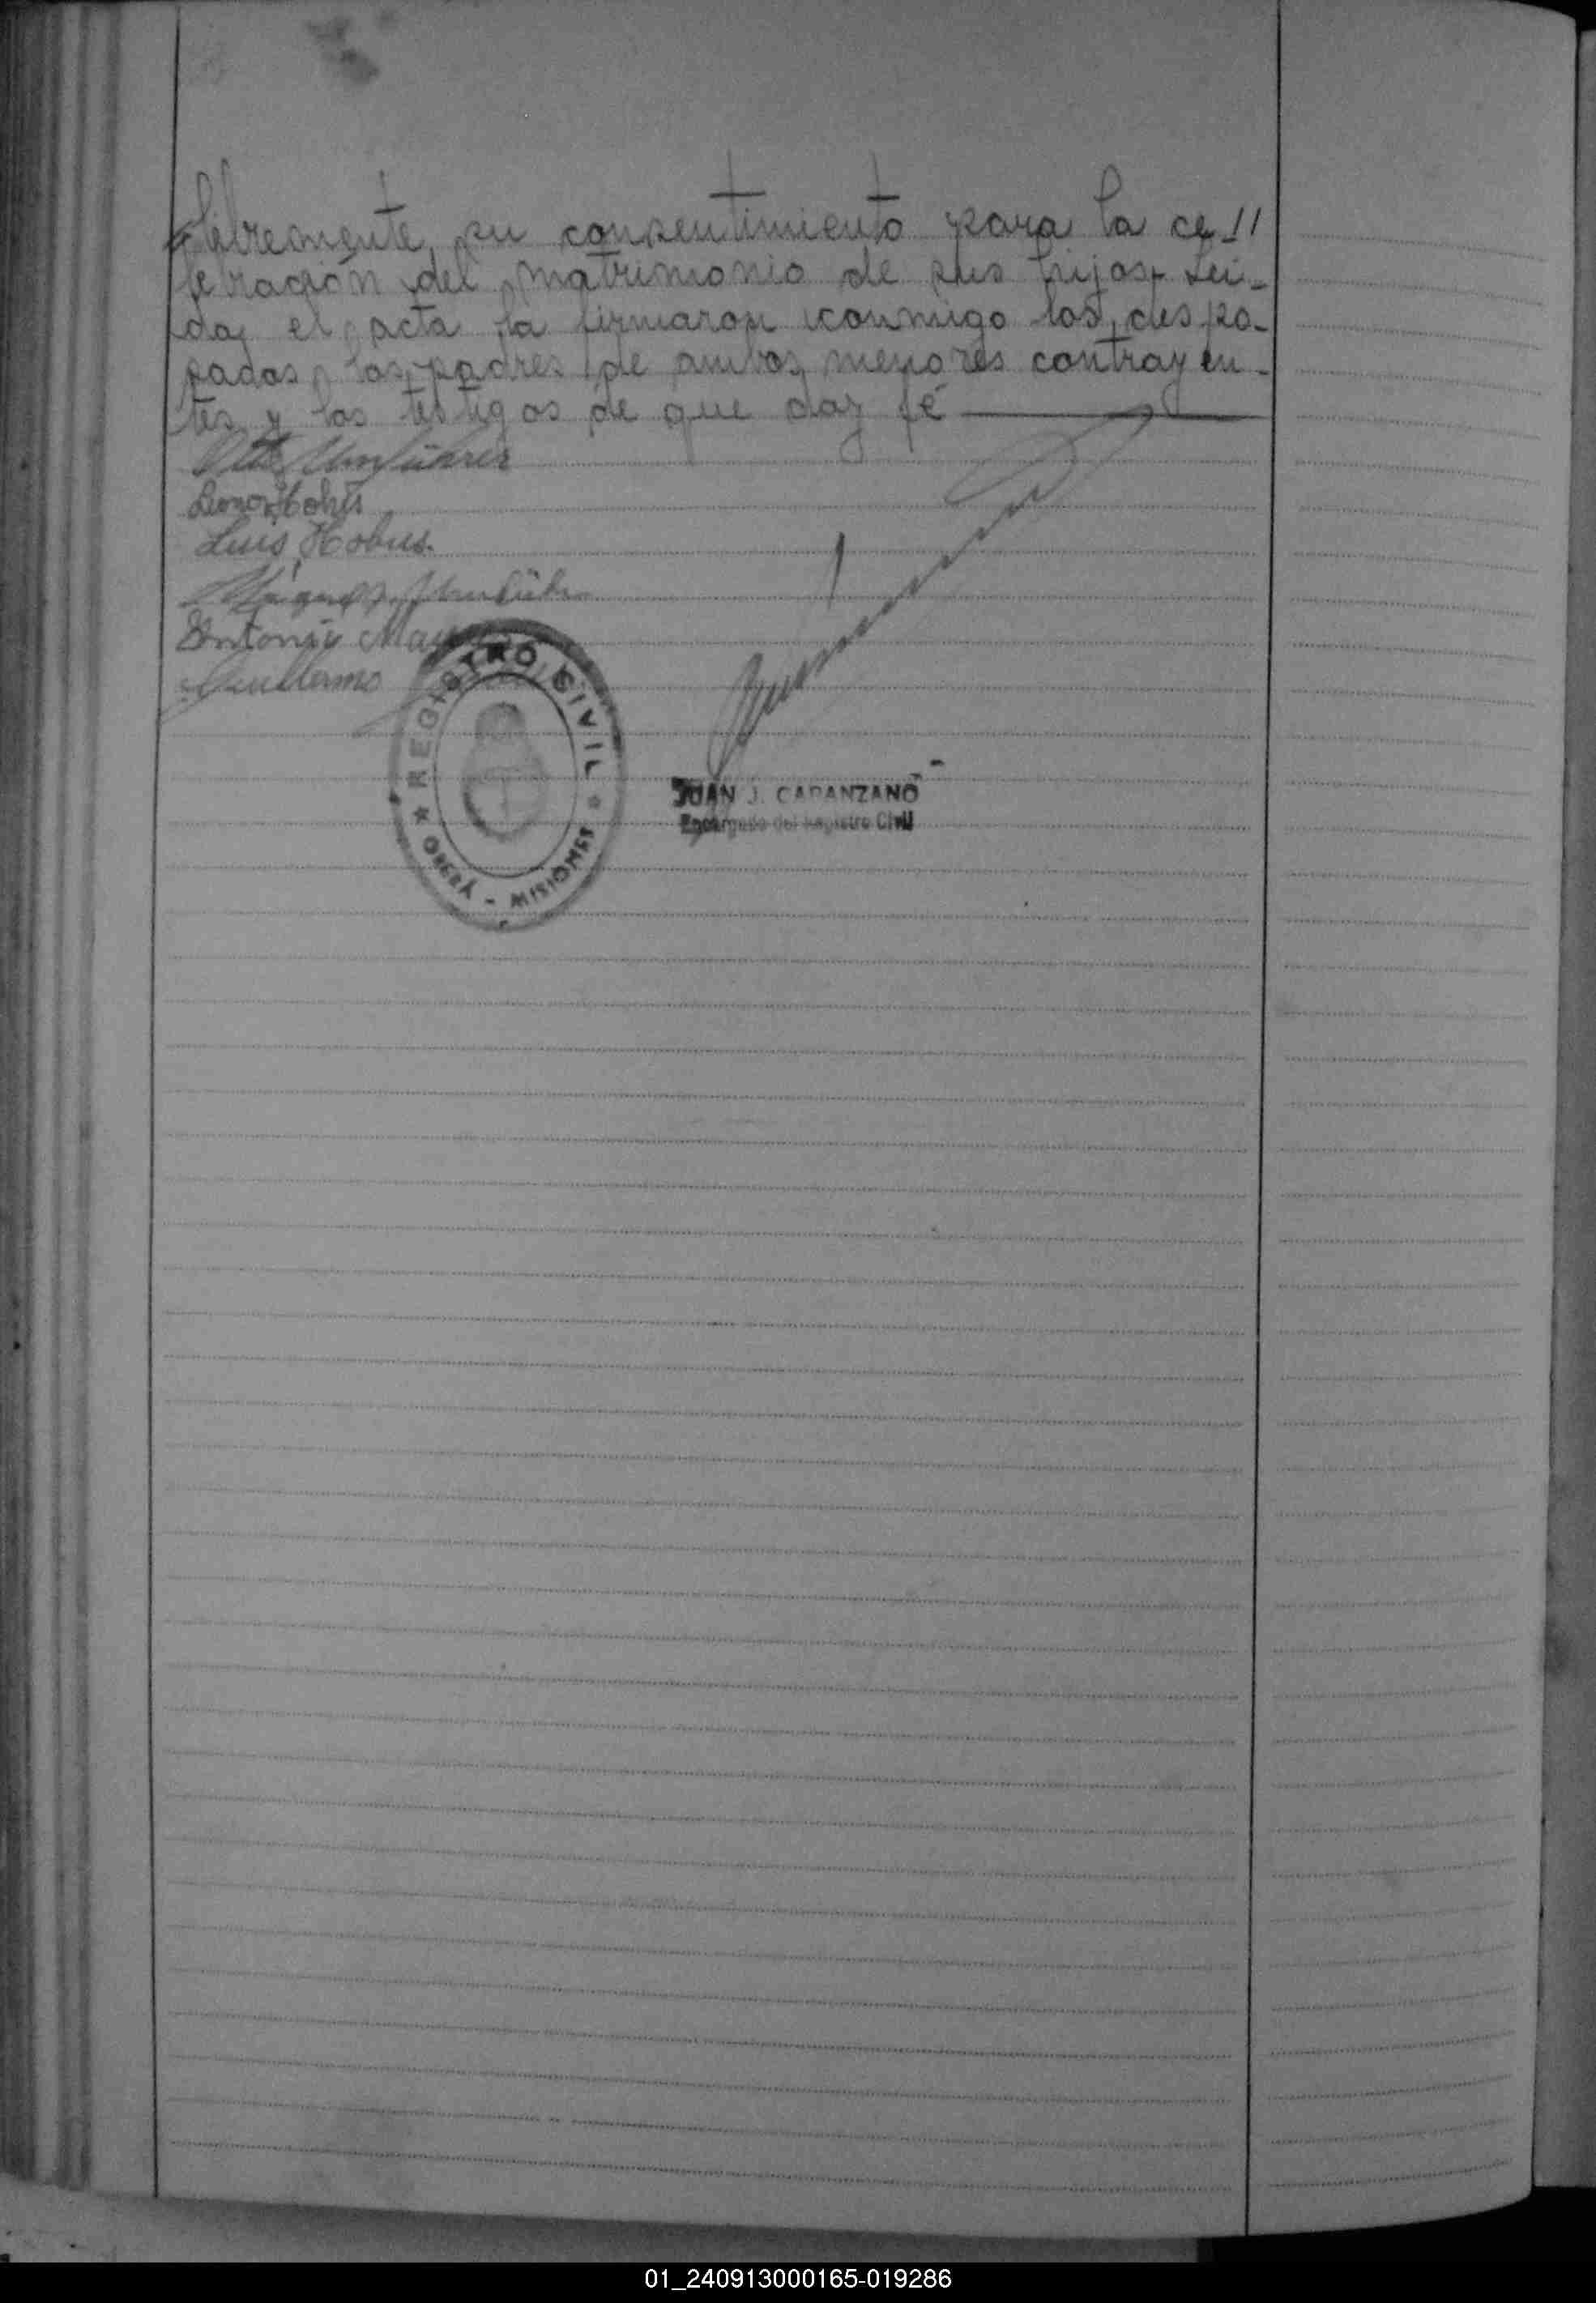 libremente, su consentimiento para la ce//
lebración del matrimonio de sus hijos. Lei-
da, el acta la firmaron conmigo los despo-
sados, los padres de ambos menores contrayen-
tes y los testigos de que doy fé
Otto
Luis Hobus.
Antonio
Guillermo
REGISTRO CIVIL
OBERÁ - MISIONES
JUAN J. CAPANZANO
Encargado del Registro Civil
01_240913000165-019286